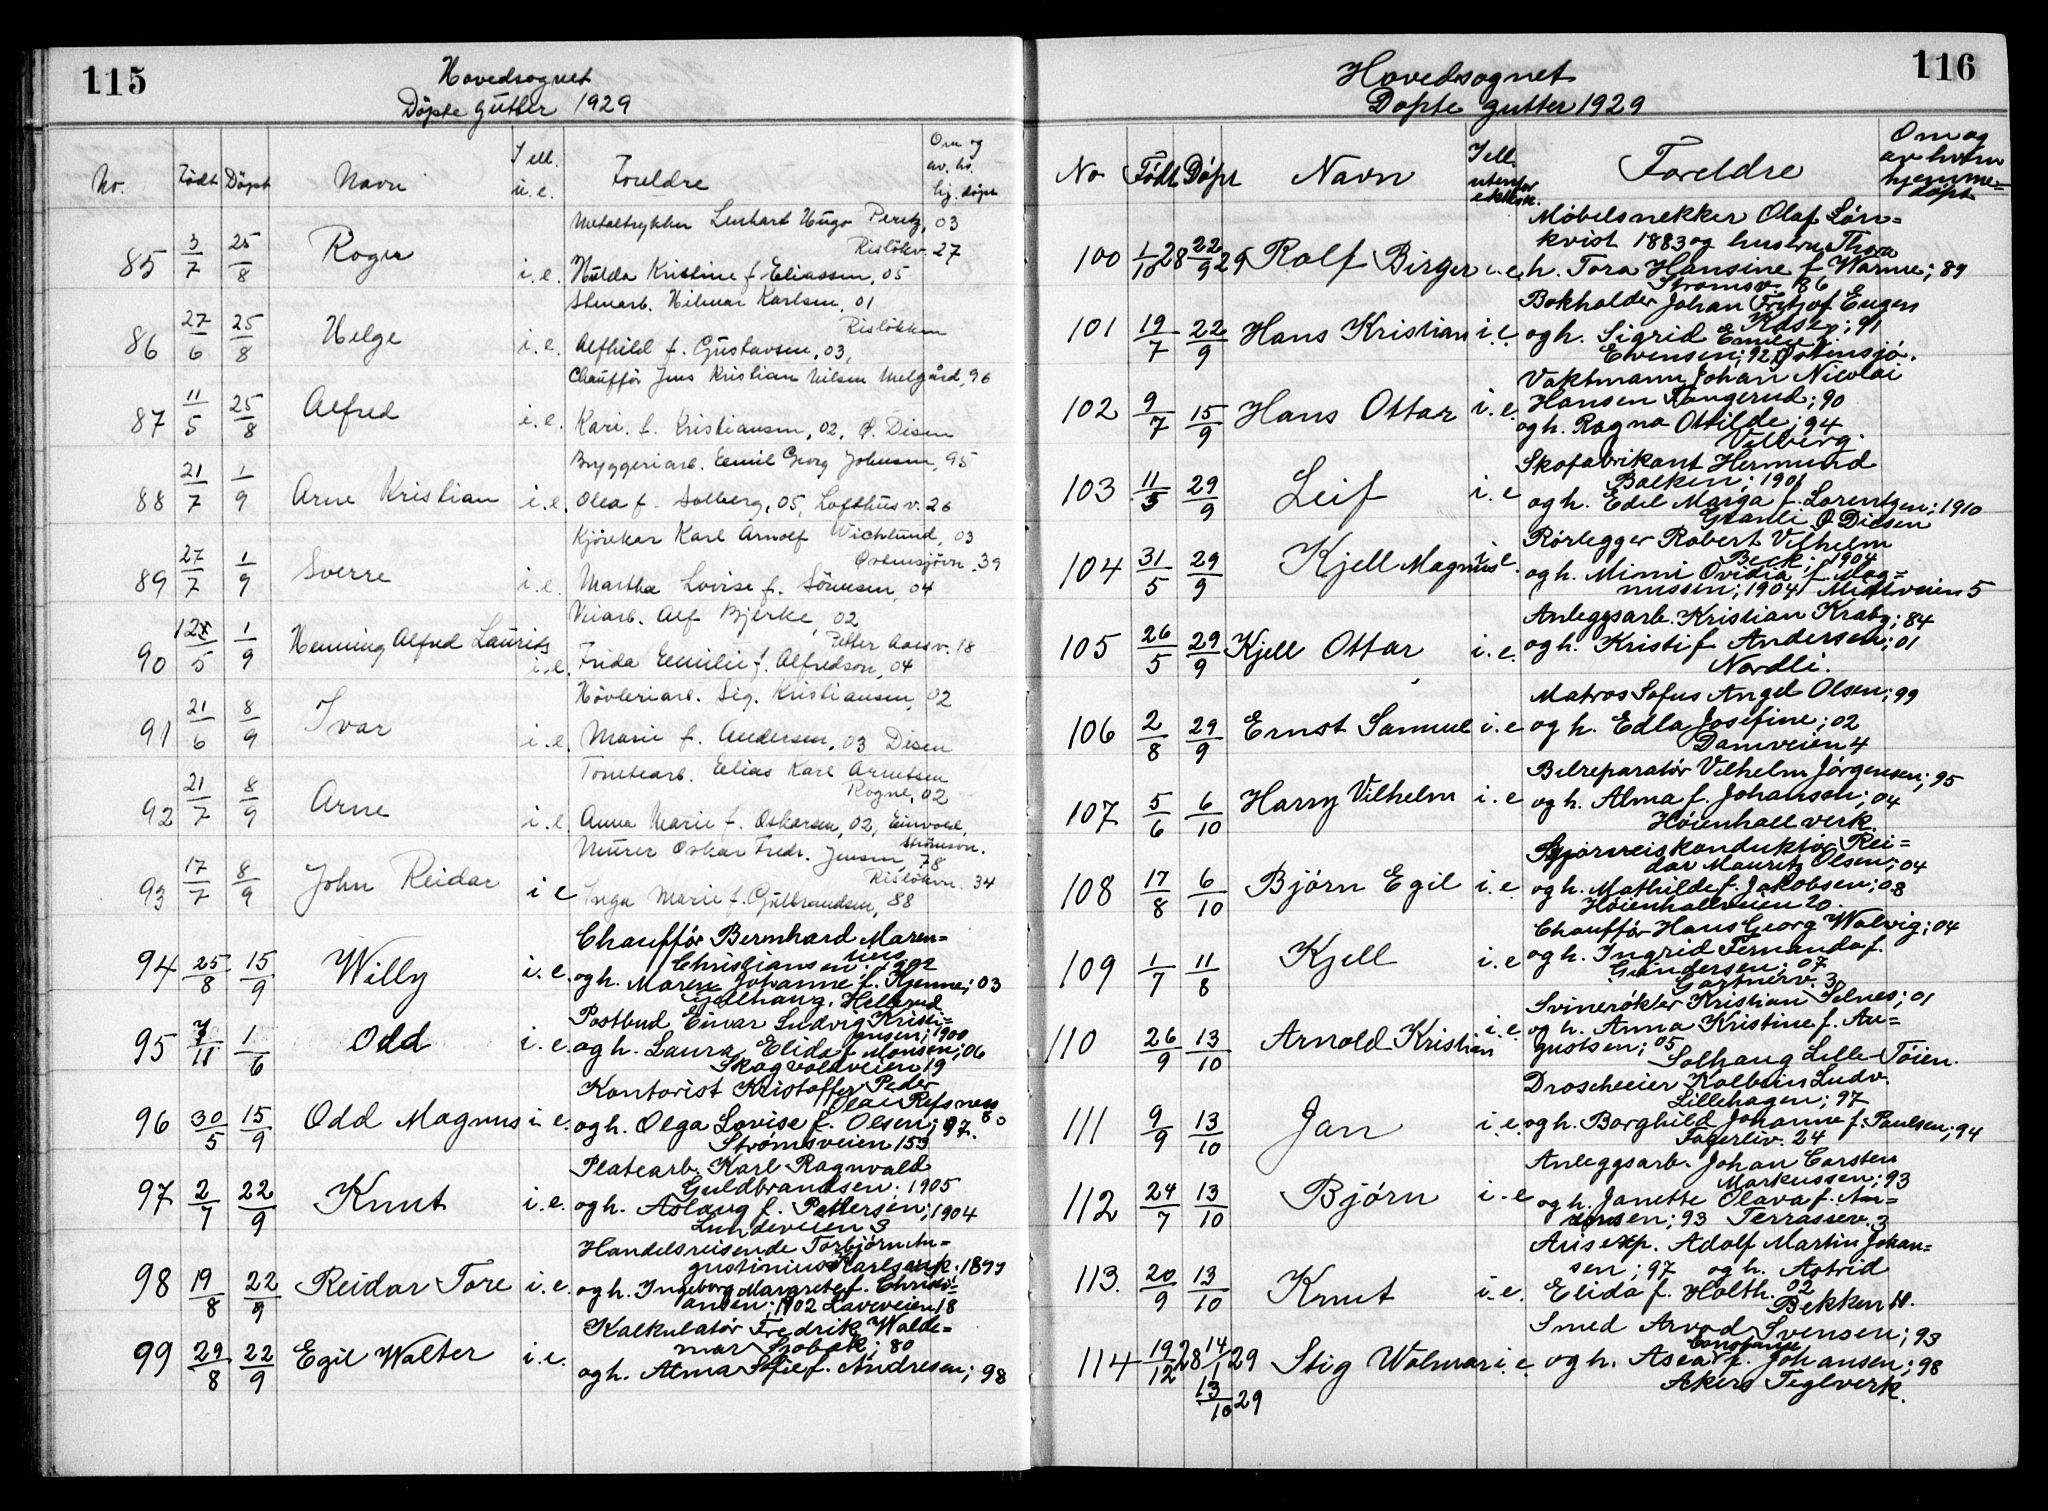 115
Hovedsognet
Döpte Gutter 1929
No. Födt Döpt Navn I ell. u.e. Foreldre Om og av. hv. hj. döpt
Metaltrykker Lenhart Hugo Peretz, 03
Risløkv. 27
85 3/7 25/8 Roger i.e. Hulda Kristine f. Eliassen, 05
Stenarb. Hilmar Karlsen, 01
Risløkken
86 27/6 25/8 Helge i.e. Alfhild f. Gustavsen, 03,
Chauffør Jens Kristian Nilsen Melgård, 96
87 11/5 25/8 Alfred i.e. Kari. f. Kristiansen, 02, Ø. Disen
Bryggeriarb. Emil Georg Johnsen, 95
88 21/7 1/9 Arne Kristian i.e. Olea f. Solberg, 05, Lofthusv. 26
Kjørekar Karl Arnolf Wichlund, 03
Østensjøvn. 39
89 27/7 1/9 Sverre i.e. Martha Lovise f. Sörensen, 04
Veiarb. Alf Bjerke, 02
Petter Aasv. 18
90 12/5 1/9 Henning Alfred Laurits i.e. Frida Emilie f. Alfredson, 04
Høvleriarb. Sig. Kristiansen, 02
91 21/6 8/9 Ivar i.e. Marie f. Andersen, 03 Disen
Tomtearb. Elias Karl Arnetsen
Rogne, 02
92 21/7 8/9 Arne i.e. Anna Marie f. Oskarsen, 02, Einvold,
Strömsv.
Murer Oskar Fredr. Jensen, 78
Risløkvn. 34
93 17/7 8/9 John Reidar i e Inga Marie f. Gulbrandsen, 88
Chauffør Bernhard Maren=
ius
Christiansen; 1902
94 25/8 15/9 Willy i.e. og h. Maren Johanne f. Hjenne; 03
Gjellhaug, Hellerud
Postbud Einar Ludvig Kristi=
ansen; 1900
95 7/11 1/6 Odd i.e. og h. Laura Elida f. Monsen; 06
Skogvoldveien 19
Kontorist Kristoffer Peder
Olai Refsness 80
96 30/5 15/9 Odd Magnus i.e. og h. Olga Lovise f. Olsen; 97.
Strømsveien 153
Platearb. Karl Ragnvald
Guldbrandsen. 1905
97 2/7 22/9 Knut i.e. og h. Aslaug f. Pettersen; 1904
Lundeveien 3
Handelsreisende Torbjørn Au=
gustinius Karlsen; 1899
98 19/8 22/9 Reidar Tore i.e. og h. Ingeborg Margrete f. Christi=
ansen; 1902 Lavveien 18
Kalkulatør Fredrik Walde=
mar Sjøbak; 80
99 29/8 22/9 Egil Walter i.e. og h. Alma Sofie f. Andresen; 98
116
Hovedsognet
Døpte gutter 1929
No Født Døpt Navn I ell. utenfor ektesk. Foreldre Om og av hvem hjemme=døpt
Møbelsnekker Olaf Løn=
kvist 1883 og hustru Thora
100 1/10 28 22/9 29 Rolf Birger i.e. h. Tora Hansine f. Warme; 89
Strømsv. 86
Bokholder Johan Fritjof Eugen
Kåse; 91
101 19/7 22/9 Hans Kristian i.e. og h. Sigrid Emilie f.
Evensen; 92 Østensjø.
Vaktmann Johan Nicolai
102 9/7 15/9 Hans Ottar i.e. Hansen Langerud; 90
og h. Ragna Ottilde; 94
Vilberg.
Skofabrikant Hermund
Bakken; 1901
103 11/5 29/9 Leif i.e og h. Edel Marga f. Lorentzen; 1910
Granli Ø Disen
Rørlegger Robert Vilhelm
Beck; 1904
104 31/5 29/9 Kjell Magnus i.e. og h. Mimi Ovidia f. Mag=
nussen; 1904 Midtveien 5
Anleggsarb. Kristian Kraby; 84
105 26/5 29/9 Kjell Ottar i.e. og h. Kristi f Andersen; 01
Nordli.
Matros Sofus Angel Olsen; 99
106 2/8 29/9 Ernst Samuel i.e og h. Edla Josefine; 02
Damveien 4
Bilreparatør Vilhelm Jørgensen; 95
107 5/6 6/10 Harry Vilhelm i.e og h. Alma f. Johansen; 04
Høienhall verk.
Sporveiskonduktør Rei=
dar Mauritz Olsen; 04
108 17/8 6/10 Bjørn Egil i.e og h. Mathilde f. Jakobsen; 08
Høienhallveien 20.
Chauffør Hans Georg Walvig; 04
109 1/7 11/8 Kjell i.e og h. Ingrid Fernanda f.
Gundersen; 07
Gartnerv. 3
Svinerøkter Kristian Selnes; 01
110 26/9 13/10 Arnold Kristian i.e og h. Anna Kristine f. Au=
gustsen; 05
Solhaug Lille-Tøien.
Droscheeier Kolbein Ludv.
Lillehagen; 97
111 9/9 13/10 Jan i.e. og h. Borghild Johanne f. Paulsen; 94
Fagerliv. 24
Anleggsarb. Johan Carsten
Markussen; 93
112 24/7 13/10 Bjørn i.e og h. Janette Olava f. An=
densen; 93 Terrassev. 3
Avisexp. Adolf Martin Johan=
sen; 97 og h. Astrid
113. 20/9 13/10 Knut i.e. Elida f. Holth. 02
Bekken H.
Smed Arvod Svensen; 93
Constanse
114 19/12 28 14/1 29 Stig Wolmar i.e og h. Asea f. Johansen; 98
13/10 29 Akers Teglverk.